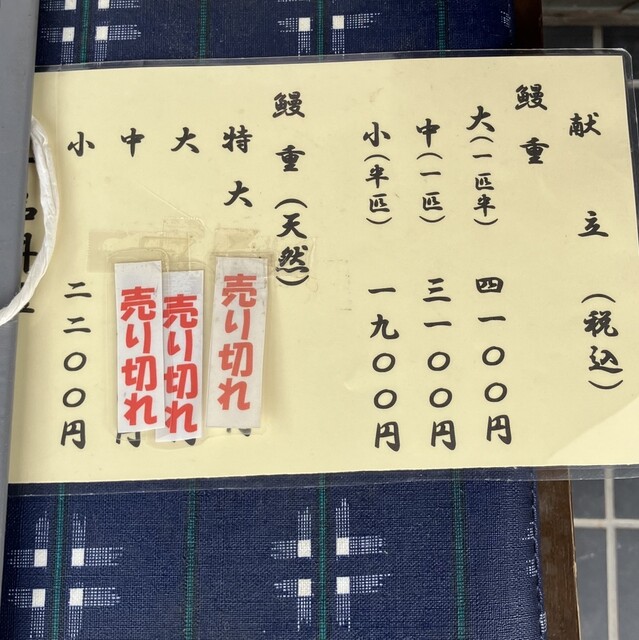 献立（税込）
鰻重
大（一匹半）　四一〇〇円
中（一匹）　三一〇〇円
小（半匹）　一九〇〇円
鰻重（天然）
特大　売り切れ
大　売り切れ
中　売り切れ　円
小　二二〇〇円